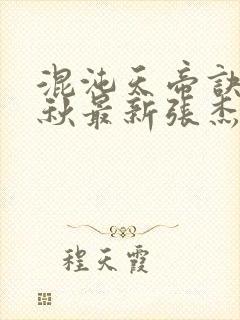 混沌天帝訣
秋最新張杰
程天霞